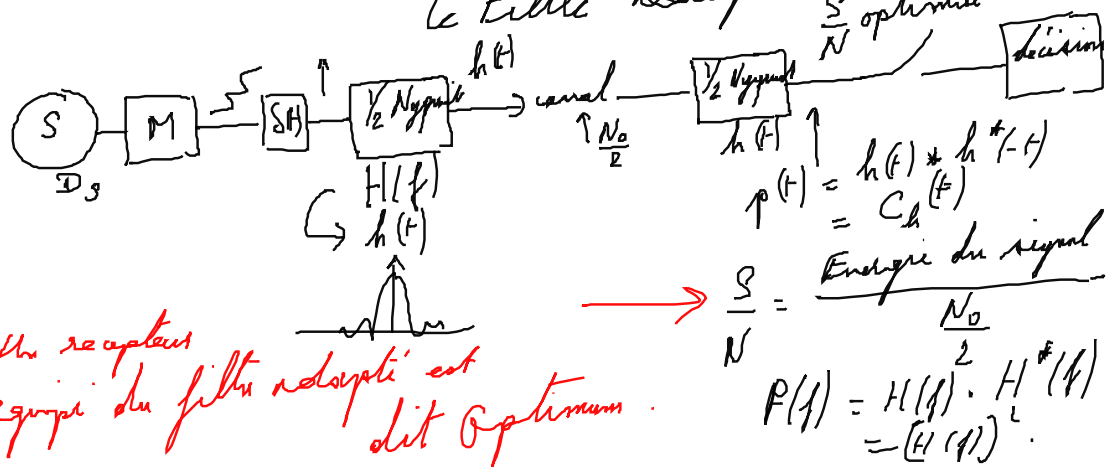 Le Filtre
S/N optimise
S
D_s
M
SH
1/2 Nyquist
h(t)
H(f)
h(t)
canal
N_0/2
1/2 Nyquist
h(t)
décision
p(t) = h(t) * h*(-t)
= C_h(t)
S/N = Energie du signal / N_0/2
P(f) = H(f) . H*(f)
= [H(f)]².
Un recepteur
equipé du filtre adapté est
dit Optimum.